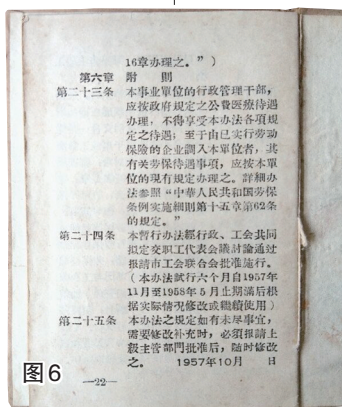 16章办理之。”）
第六章 附則
第二十三条 本事业單位的行政管理干部，
应按政府規定之公費医療待遇
办理，不得享受本办法各項規
定之待遇；至于由已实行劳动
保險的企业調入本單位者，其
有关劳保待遇事項，应按本單
位的現有規定办理之。詳細办
法参照“中華人民共和国劳保
条例实施細則第十五章第62条
的規定。”
第二十四条 本暫行办法經行政、工会共同
拟定交职工代表会議討論通过
报請市工会联合会批准施行。
（本办法試行六个月自1957年
11月至1958年5月止期滿后根
据实际情况修改或繼續使用）
第二十五条 本办法之規定如有未尽事宜，
需要修改补充时，必須报請上
級主管部門批准后，随时修改
之。 1957年10月 日
图6
—22—